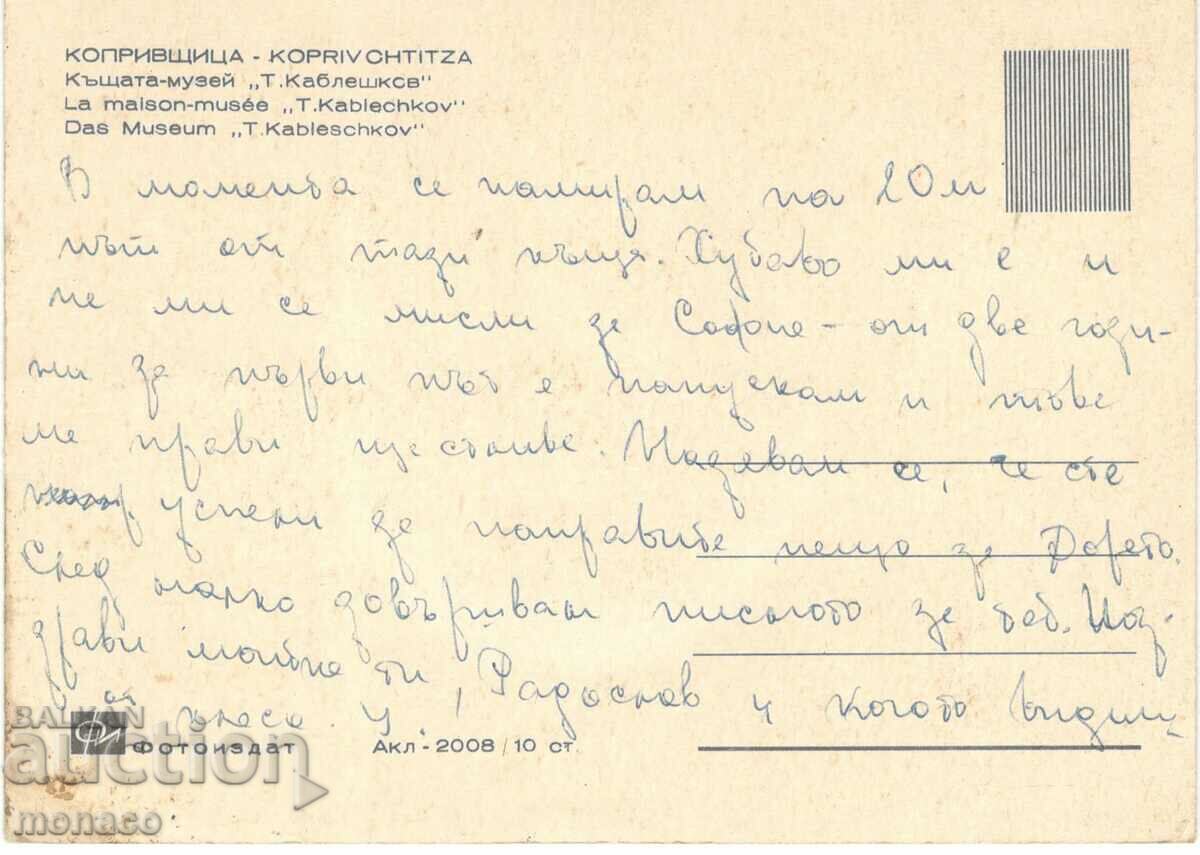 КОПРИВЩИЦА - KOPRIVCHTITZA
Къщата-музей „Т.Каблешков"
La maison-musée „T.Kablechkov"
Das Museum „T.Kableschkov"
В момента се намирам на 20 м
път от тази къща. Хубаво ми е и
не ми се мисли за София - от две годи-
ни за първи път е напускам и това
ме прави щастлива. Надявам се, че сте
успели да направите нещо за Дорето.
След малко довършвам писмото за теб. Поз-
драви майка ти, Радослав и когото видиш
от
ФИ Фотоиздат Акл-2008/10 ст.
BALKAN
auction
monaco